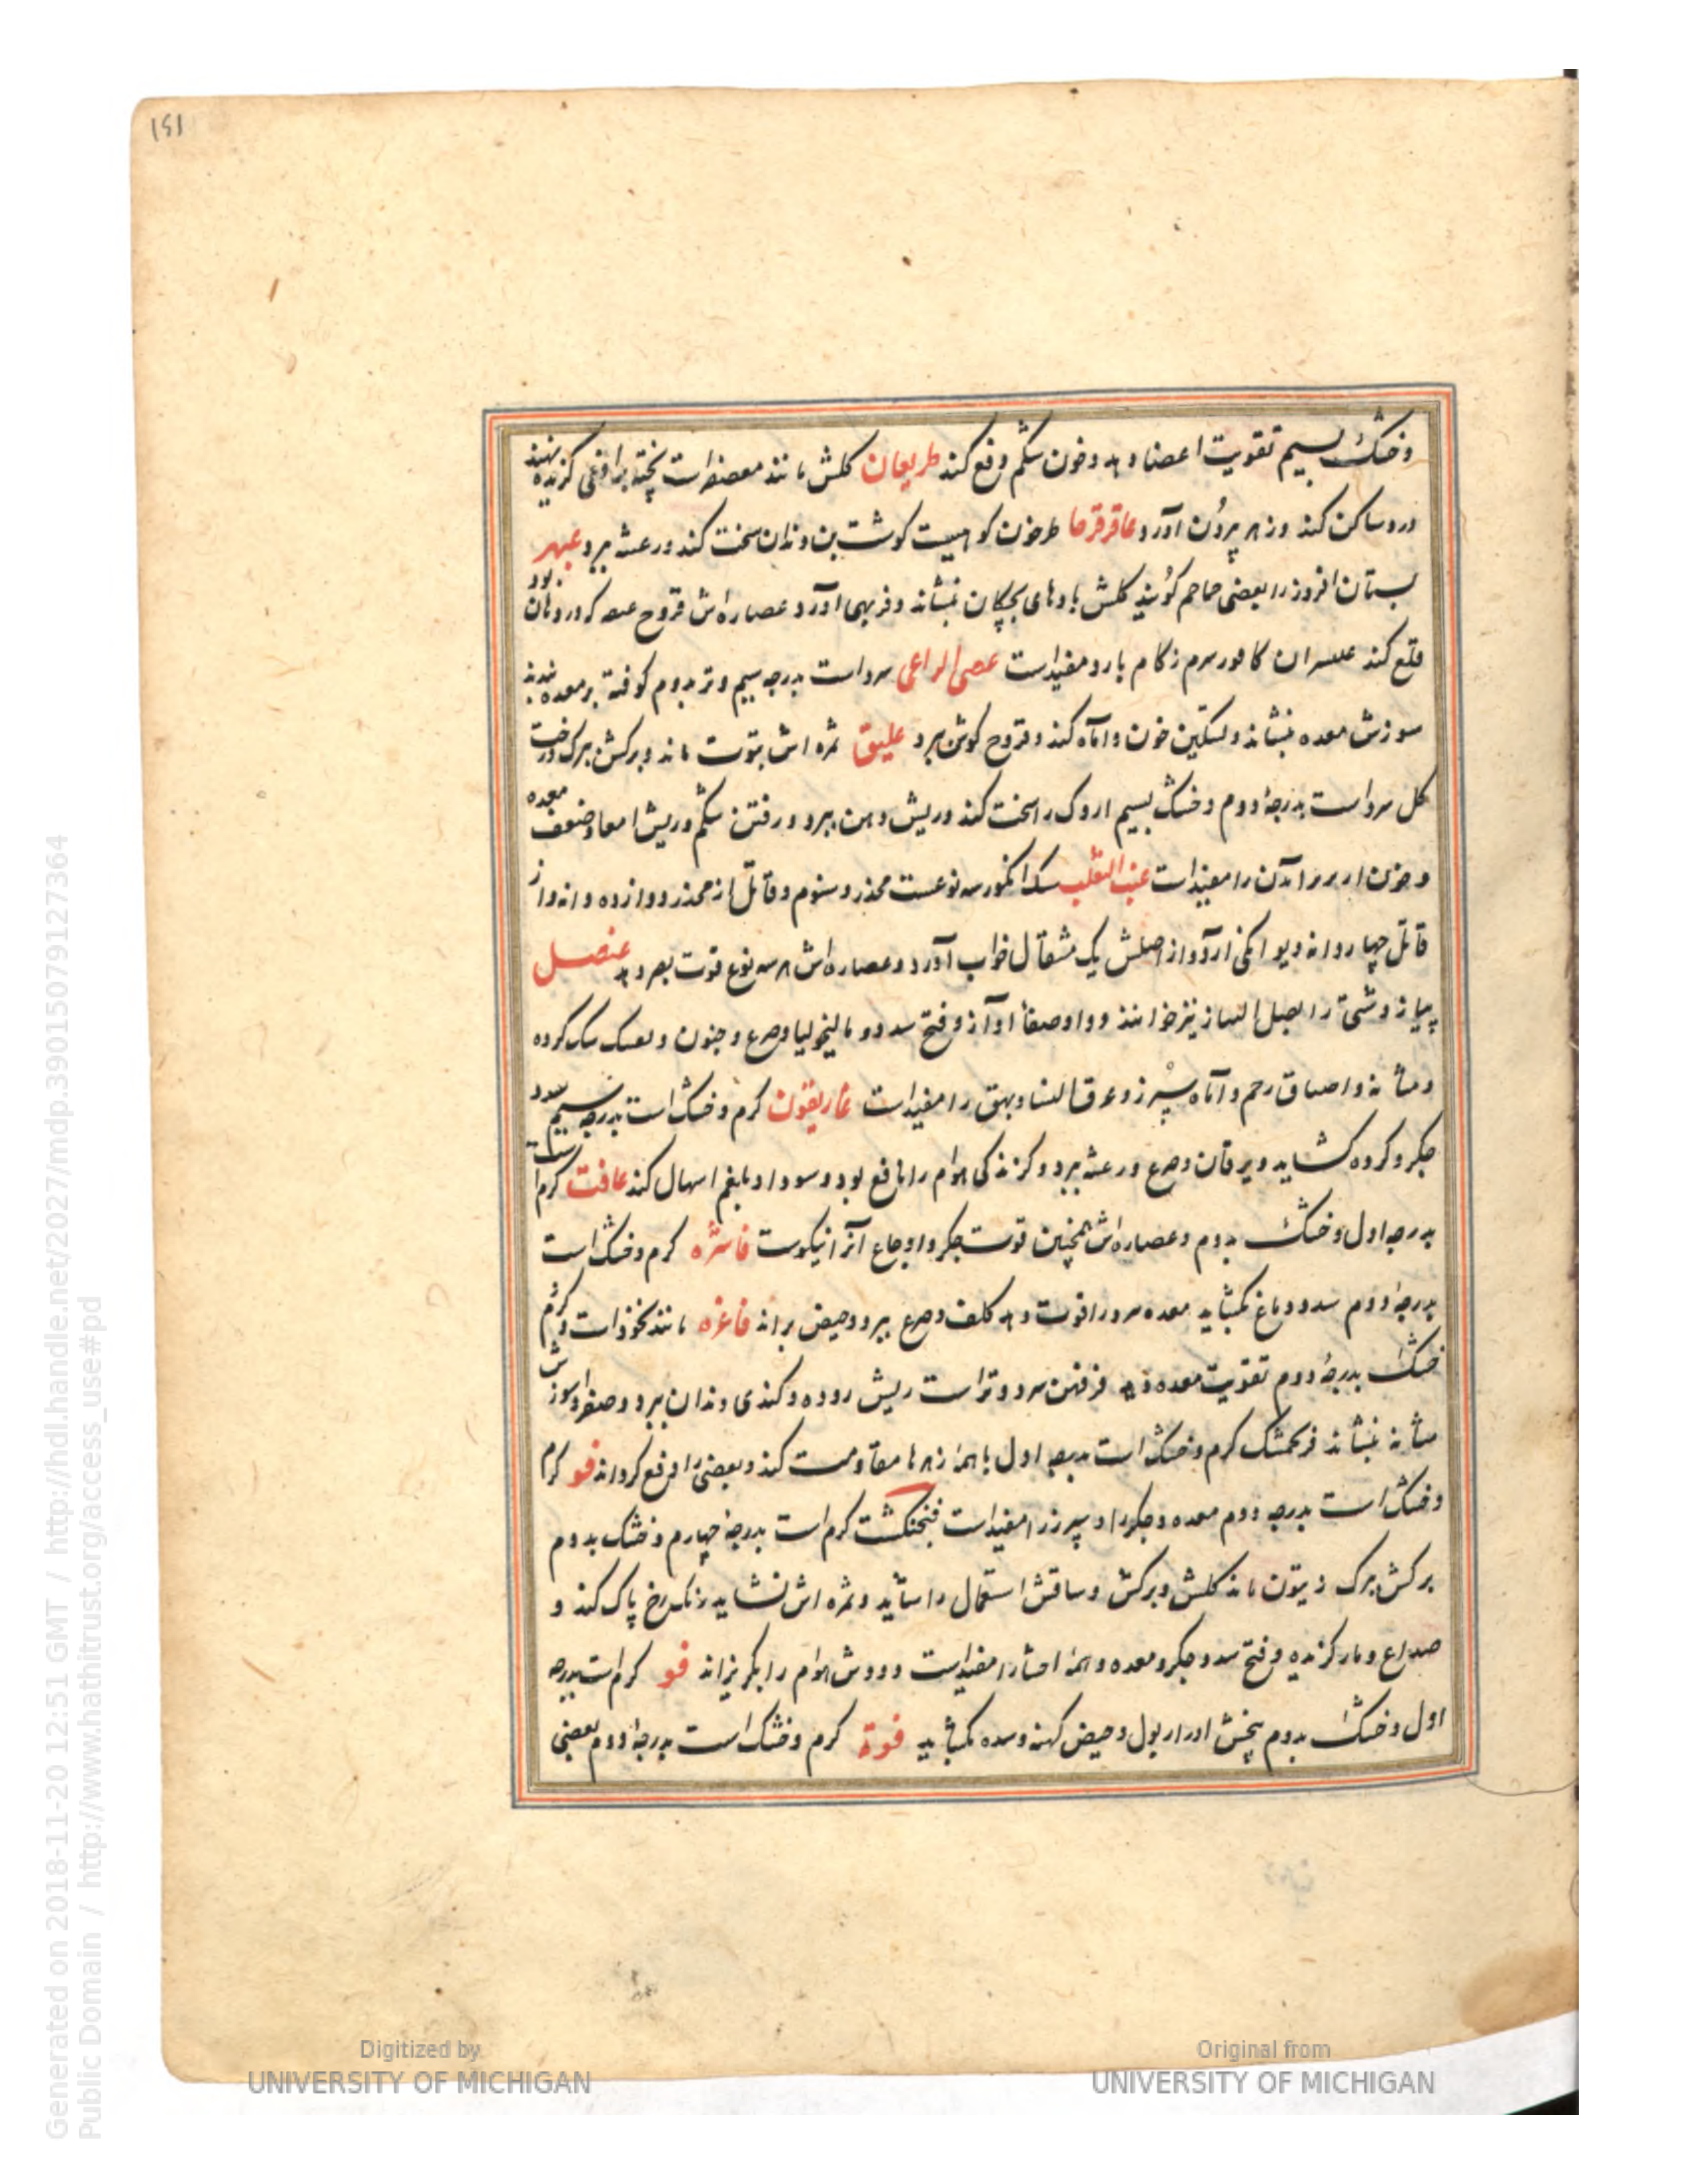 ١٤١
وخشک بسیم تقویت اعضا دهد وخون شکم دفع کند طریعان کلش مانند معصفرات پخته برافعی کزیده نهند
درد ساکن کند وزهر برون آورد عاقرقرحا طرخون کوهیست کوشت بن دندان سخت کند ورعشه ببرد عبهر
بستان افروز را بعضی حماحم کویند کلش بادهای بچکان بنشاند وفربهی آورد وعصاره اش قروح که در دهان بود
قلع کند کافور سرم زکام بارد مفید است عصی الراعی سرد است بدرجه سیم وتر بدوم کوفته برمعده نهند
سوزش معده بنشاند وتسکین خون وآماه کند وقروح کوش ببرد علیق ثمره اش بتوت ماند وبرکش ببرک درخت
کل سرد است بدرجهٔ دوم وخشک بسیم اروک را سخت کند وریش دهن ببرد ورفتن شکم وریش امعا وضعف معده
وخون از بر برآمدن را مفید است عنب الثعلب سک انکور سه نوعست مخدر ومنوم وقاتل از مخدر دوازده دانه واز
قاتل چهار دانه دیوانکی آرد واز اصلش یک مثقال خواب آورد وعصاره اش هر سه نوع قوت بصر دهد عنصل
پیاز دشتی را بصل الفار نیز خوانند وداء وصفاء آواز وفتح سدد ومالیخولیا وصرع وجنون وسنک کرده
ومثانه واختناق رحم وآماه سپرز وعرق النسا وبهق را مفید است غاریقون کرم وخشک است بدرجه سیم سدد
جکر وکرده کشاید ویرقان وصرع ورعشه ببرد وکزندکی هوام را نافع بود وسودا وبلغم اسهال کند غافت کرم است
بدرجه اول وخشک بدوم وعصاره اش همچنین قوت جکر واوجاع آنرا نیکوست فاشره کرم وخشک است
بدرجهٔ دوم سدد دماغ بکشاید معده سرد را قوت دهد کلف وصرع ببرد وحیض براند فاغره مانند نخود است وکرم
خشک بدرجهٔ دوم تقویت معده دهد فرفهن سرد وتر است ریش روده وکندی دندان ببرد وصفرا وسوزش
مثانه بنشاند فرنجمشک کرم وخشک است بدرجه اول با همهٔ زهرها مقاومت کند وبعضی را دفع کرداند فو کرم
وخشک است بدرجه دوم معده وجکر را وسپرز را مفید است فنجنکشت کرم است بدرجهٔ چهارم وخشک بدوم
برکش ببرک زیتون ماند کلش وبرکش وساقش استعمال را شاید وثمره اش نشاید رنک رخ پاک کند و
صداع ومار کزیده وفتح سدد جکر ومعده وهمهٔ احشا را مفید است ودودش هوام را بکریزاند فو کرم است بدرجه
اول وخشک بدوم بیخش ادرار بول وحیض کند وسده بکشاید فوة کرم وخشک است بدرجهٔ دوم بعضی
Generated on 2018-11-20 12:51 GMT / http://hdl.handle.net/2027/mdp.39015079127364
Public Domain / http://www.hathitrust.org/access_use#pd
Digitized by
UNIVERSITY OF MICHIGAN
Original from
UNIVERSITY OF MICHIGAN